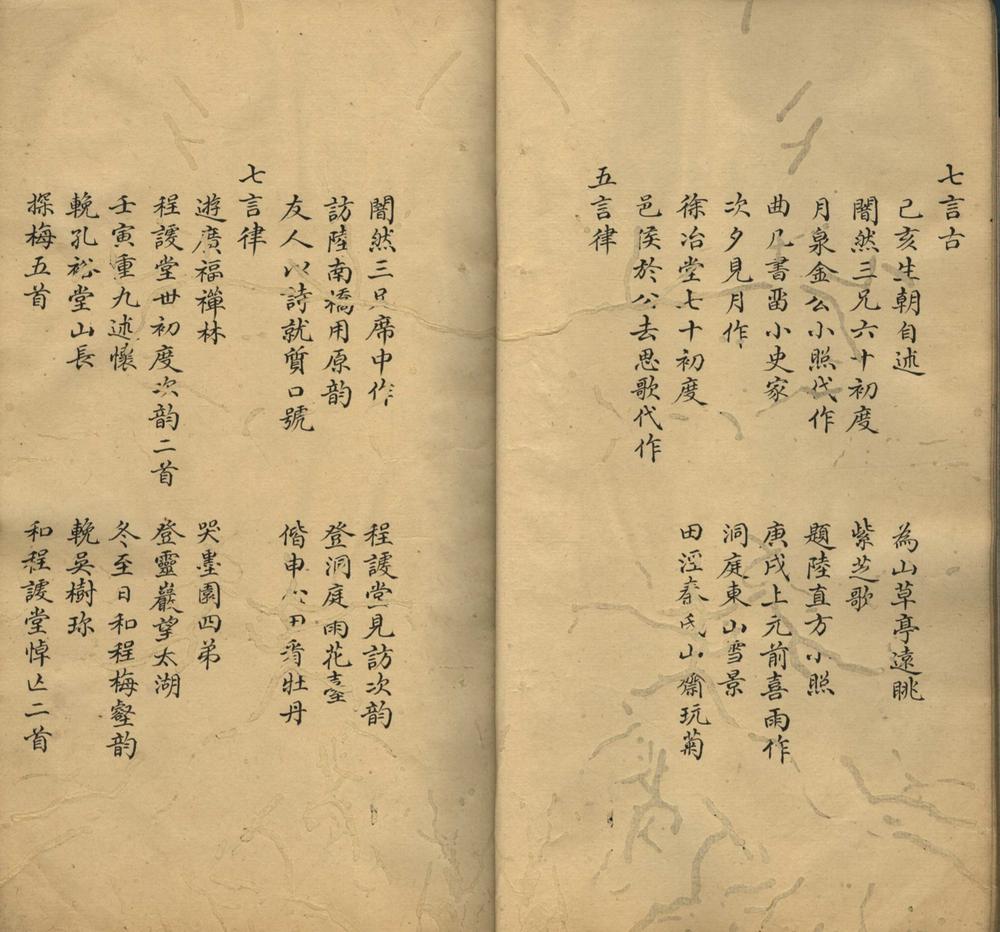 七言古
己亥生朝自述
為山草亭遠眺
闇然三兄六十初度
紫芝歌
月泉金公小照代作
題陸直方小照
曲几書畱小史家
庚戌上元前喜雨作
次夕見月作
洞庭東山雪景
徐冶堂七十初度
田涇秦氏山齋玩菊
邑侯於公去思歌代作
五言律
闇然三兄席中作
程謖堂見訪次韵
訪陸南橋用原韵
登洞庭雨花臺
友人以詩就質口號
偕申 看牡丹
七言律
遊廣福禪林
哭墨園四弟
程謖堂丗初度次韵二首
登靈巖望太湖
壬寅重九述懷
冬至日和程梅壑韵
輓孔裕堂山長
輓吳樹珎
探梅五首
和程謖堂悼亡二首